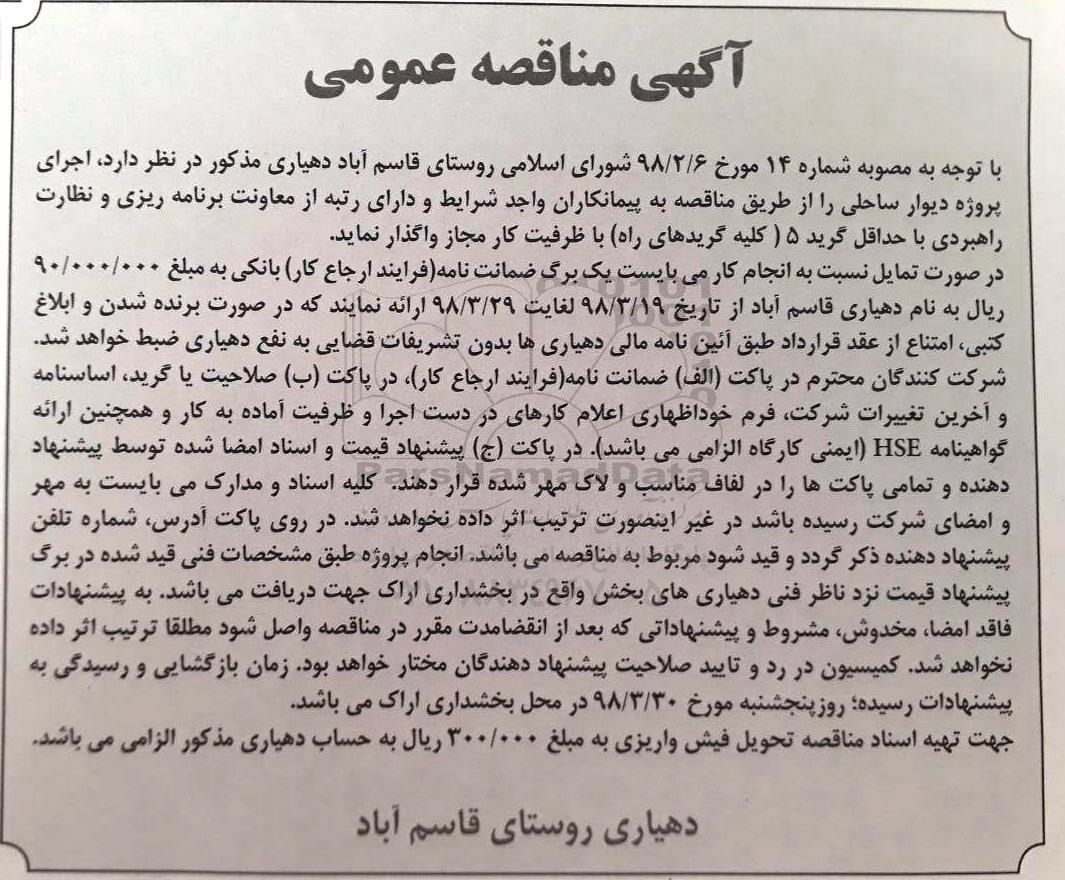 آگهی مناقصه عمومی
با توجه به مصوبه شماره ۱۴ مورخ ۹۸/۲/۶ شورای اسلامی روستای قاسم آباد دهیاری مذکور در نظر دارد، اجرای
پروژه دیوار ساحلی را از طریق مناقصه به پیمانکاران واجد شرایط و دارای رتبه از معاونت برنامه ریزی و نظارت
راهبردی با حداقل گرید ۵ ( کلیه گریدهای راه) با ظرفیت کار مجاز واگذار نماید.
در صورت تمایل نسبت به انجام کار می بایست یک برگ ضمانت نامه(فرایند ارجاع کار) بانکی به مبلغ ۹۰/۰۰۰/۰۰۰
ریال به نام دهیاری قاسم آباد از تاریخ ۹۸/۳/۱۹ لغایت ۹۸/۳/۲۹ ارائه نمایند که در صورت برنده شدن و ابلاغ
کتبی، امتناع از عقد قرارداد طبق آئین نامه مالی دهیاری ها بدون تشریفات قضایی به نفع دهیاری ضبط خواهد شد.
شرکت کنندگان محترم در پاکت (الف) ضمانت نامه(فرایند ارجاع کار)، در پاکت (ب) صلاحیت یا گرید، اساسنامه
و آخرین تغییرات شرکت، فرم خوداظهاری اعلام کارهای در دست اجرا و ظرفیت آماده به کار و همچنین ارائه
گواهینامه HSE (ایمنی کارگاه الزامی می باشد). در پاکت (ج) پیشنهاد قیمت و اسناد امضا شده توسط پیشنهاد
ParsNamadData
دهنده و تمامی پاکت ها را در لفاف مناسب و لاک مهر شده قرار دهند. کلیه اسناد و مدارک می بایست به مهر
و امضای شرکت رسیده باشد در غیر اینصورت ترتیب اثر داده نخواهد شد. در روی پاکت آدرس، شماره تلفن
پیشنهاد دهنده ذکر گردد و قید شود مربوط به مناقصه می باشد. انجام پروژه طبق مشخصات فنی قید شده در برگ
پیشنهاد قیمت نزد ناظر فنی دهیاری های بخش واقع در بخشداری اراک جهت دریافت می باشد. به پیشنهادات
فاقد امضا، مخدوش، مشروط و پیشنهاداتی که بعد از انقضامدت مقرر در مناقصه واصل شود مطلقا ترتیب اثر داده
نخواهد شد. کمیسیون در رد و تایید صلاحیت پیشنهاد دهندگان مختار خواهد بود. زمان بازگشایی و رسیدگی به
پیشنهادات رسیده؛ روزپنجشنبه مورخ ۹۸/۳/۳۰ در محل بخشداری اراک می باشد.
جهت تهیه اسناد مناقصه تحویل فیش واریزی به مبلغ ۳۰۰/۰۰۰ ریال به حساب دهیاری مذکور الزامی می باشد.
دهیاری روستای قاسم آباد